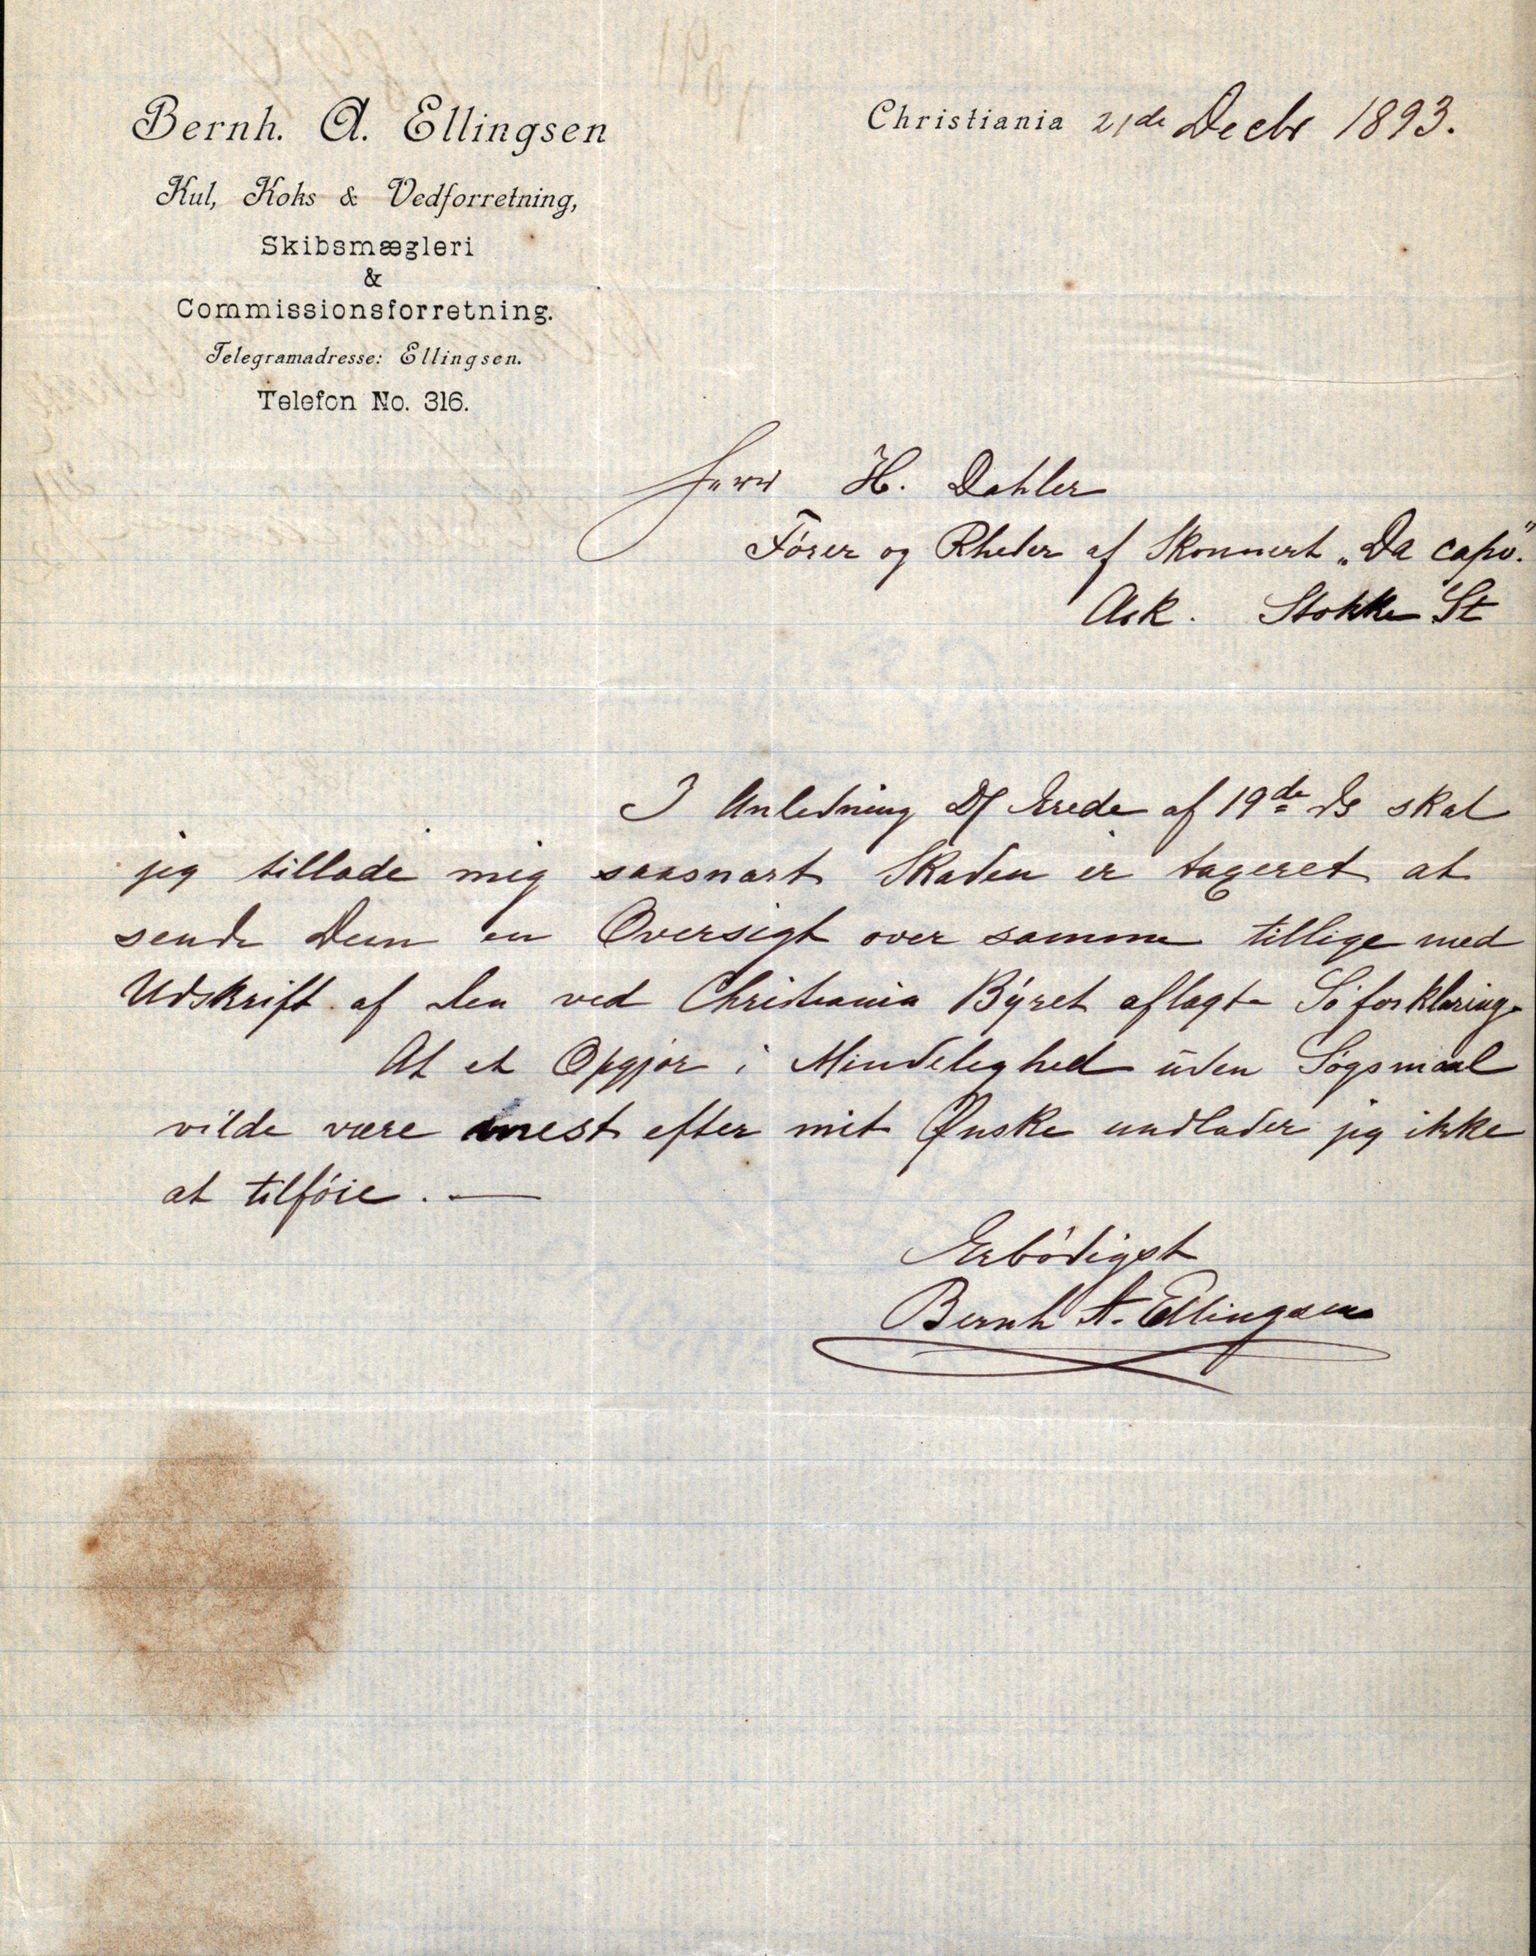 Bernh. A. Ellingsen
Kul, Koks & Vedforretning,
Skibsmægleri
&
Commissionsforretning.
Telegramadresse: Ellingsen.
Telefon No. 316.
Christiania 21de Decbr 1893.
Herr H. Dahler
Fører og Rheder af Skonnert „Da capo".
Ask. Stokke St
I Anledning D/ Ærede af 19de ds skal
jeg tillade mig saasnart Skaden er taxeret at
sende Dem en Oversigt over samme tillige med
Udskrift af den ved Christiania Byret aflagte Søforklaring.
At et Opgjør i Mindelighed uden Søgsmaal
vilde være mest efter mit Ønske undlader jeg ikke
at tilføie. —
Ærbødigst
Bernh A. Ellingsen